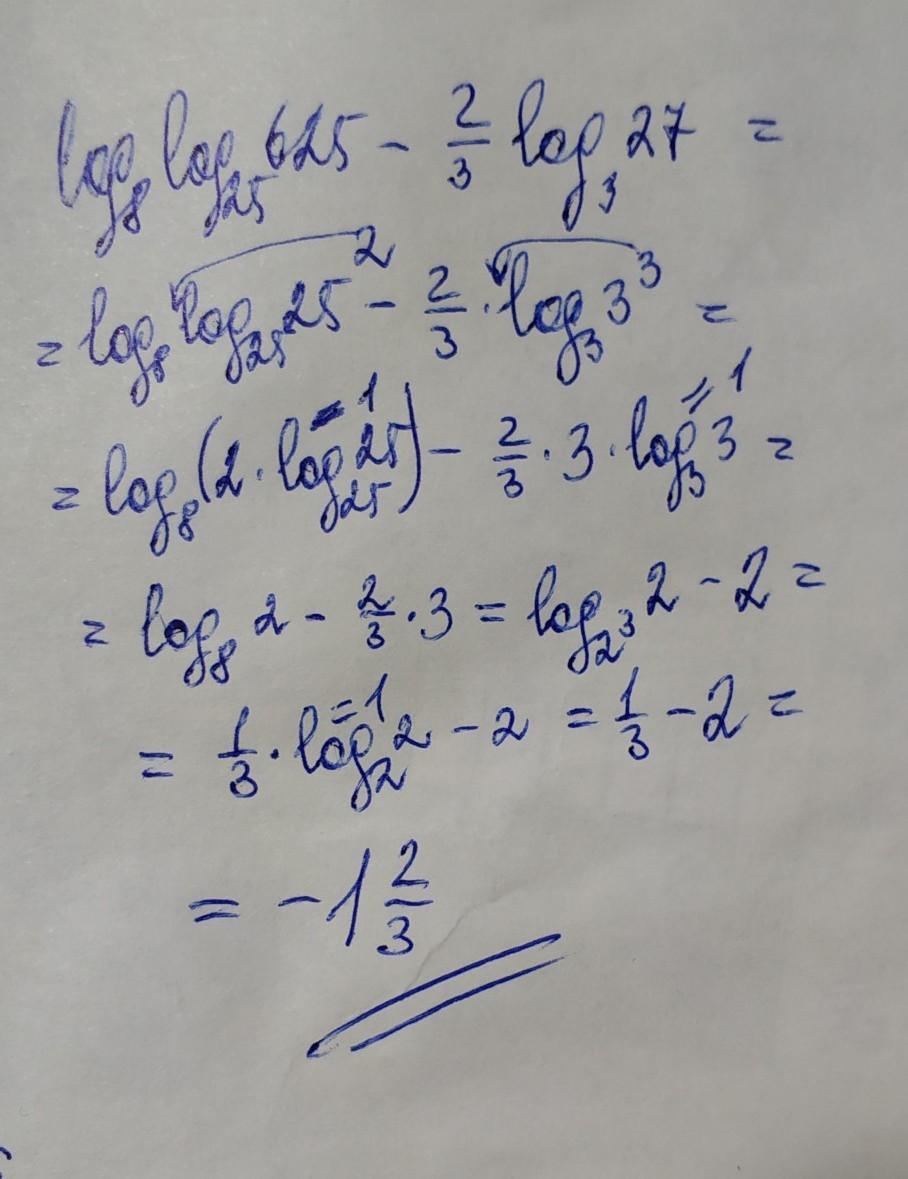 log₈ log₂₅ 625 - 2/3 log₃ 27 =
= log₈ log₂₅ 25² - 2/3 · log₃ 3³ =
= log₈ (2 · log₂₅ 25) = 1 - 2/3 · 3 · log₃ 3 = 1 =
= log₈ 2 - 2/3 · 3 = log₂³ 2 - 2 =
= 1/3 · log₂ 2 = 1 - 2 = 1/3 - 2 =
= -1 2/3